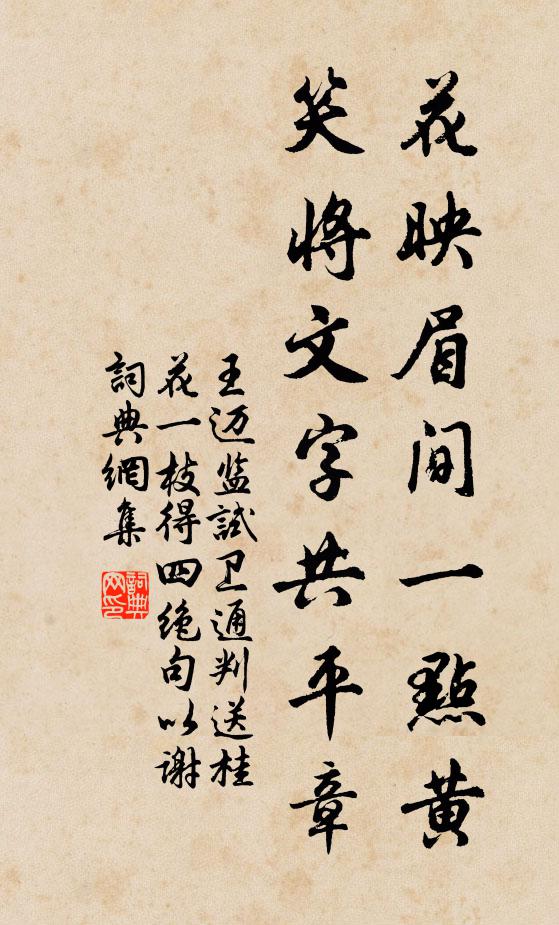 花映眉间一點黄
笑将文字共平章
王迈监試卫通判送桂
花一枝得四绝句以谢
詞典網集
詞典
网印